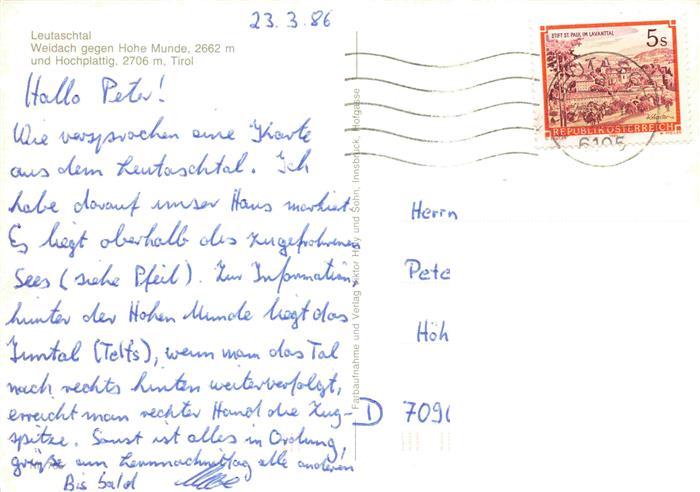 23.3.86
Leutaschtal
Weidach gegen Hohe Munde, 2662 m
und Hochplattig, 2706 m, Tirol
Hallo Peter!
Wie versprochen eine Karte
aus dem Leutaschtal. Ich
habe darauf unser Haus markiert.
Es liegt oberhalb des zugefrohrenen
Sees (siehe Pfeil). Zur Information,
hinter der Hohen Munde liegt das
Inntal (Telfs), wenn man das Tal
nach rechts hinten weiterverfolgt,
erreicht man rechter Hand die Zug-
spitze. Sonst ist alles in Ordnung,
grüße am alle anderen
Bis bald
Farbaufnahme und Verlag Viktor und Sohn, Innsbruck, Hofgasse
STIFT ST. PAUL IM LAVANTTAL
5 s
REPUBLIK ÖSTERREICH
6105
Herrn
Pete
Höh
D 709